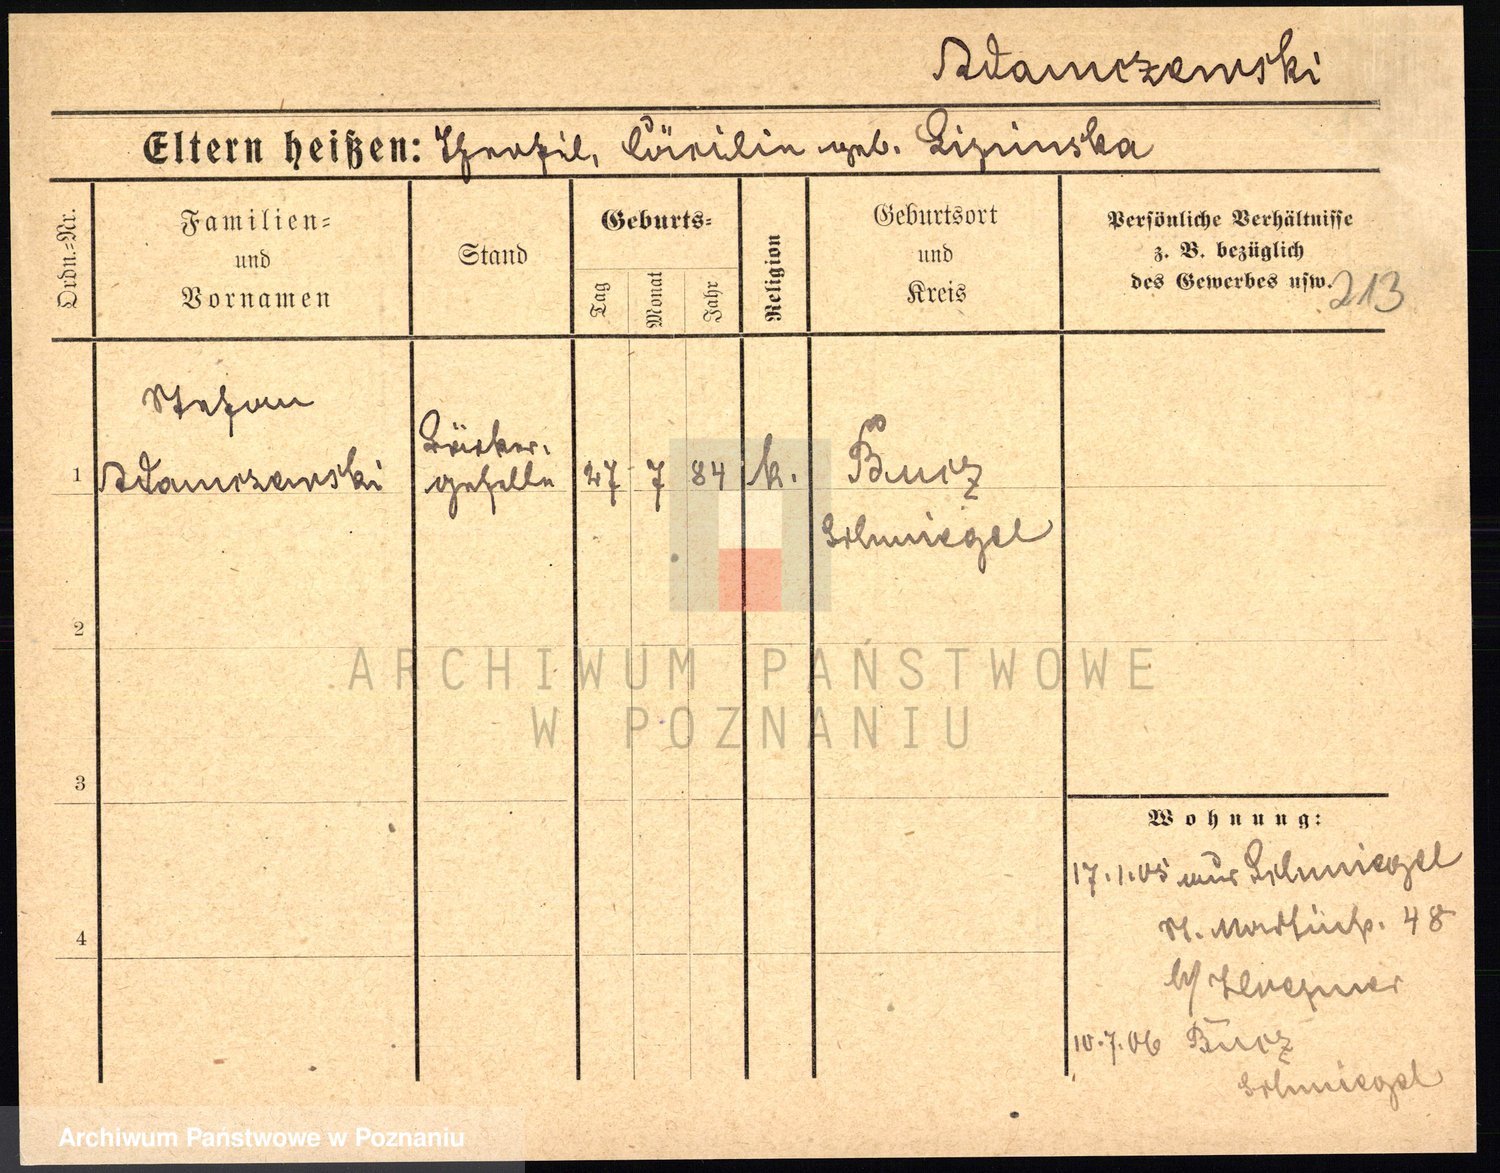 Adamczewski
Eltern heißen: Theofil, Cäcilin geb. Lipinska
Ordn.-Nr.
Familien-
und
Vornamen
Stand
Geburts-
Tag
Monat
Jahr
Religion
Geburtsort
und
Kreis
Persönliche Verhältnisse
z. B. bezüglich
des Gewerbes usw.
213
Stefan
1 Adamczewski
Bäcker-
geselle
27 7 84 k.
Bucz
Schmiegel
2
3
4
ARCHIWUM PAŃSTWOWE
W POZNANIU
Wohnung:
17.1.05 aus Schmiegel
St. Martinstr. 48
b/
10.7.06 Bucz
Schmiegel
Archiwum Państwowe w Poznaniu